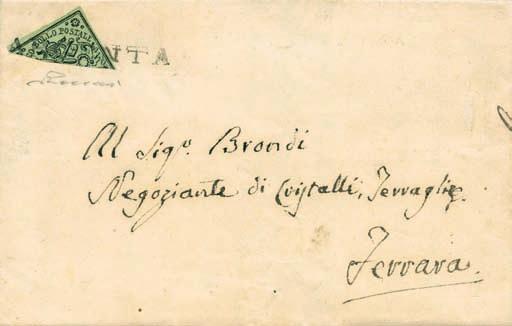 BOLLO POSTALE
NTA
Al Sigr. Brondi
Negoziante di Cristalli, Terraglie.
Ferrara.